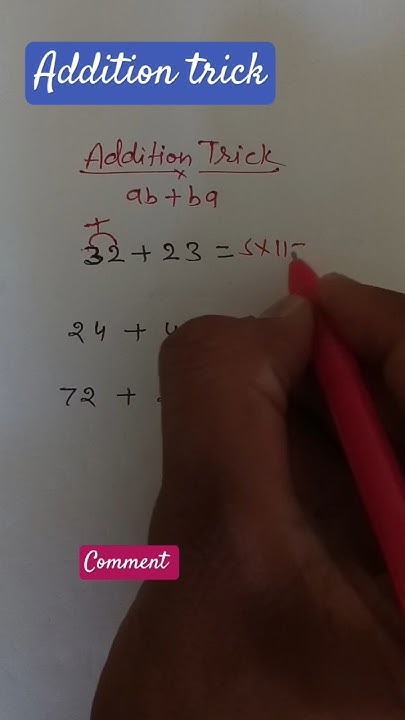 Addition trick
Addition Trick
ab + ba
+
32 + 23 = 5×11=
24 + 4
72 +
Comment